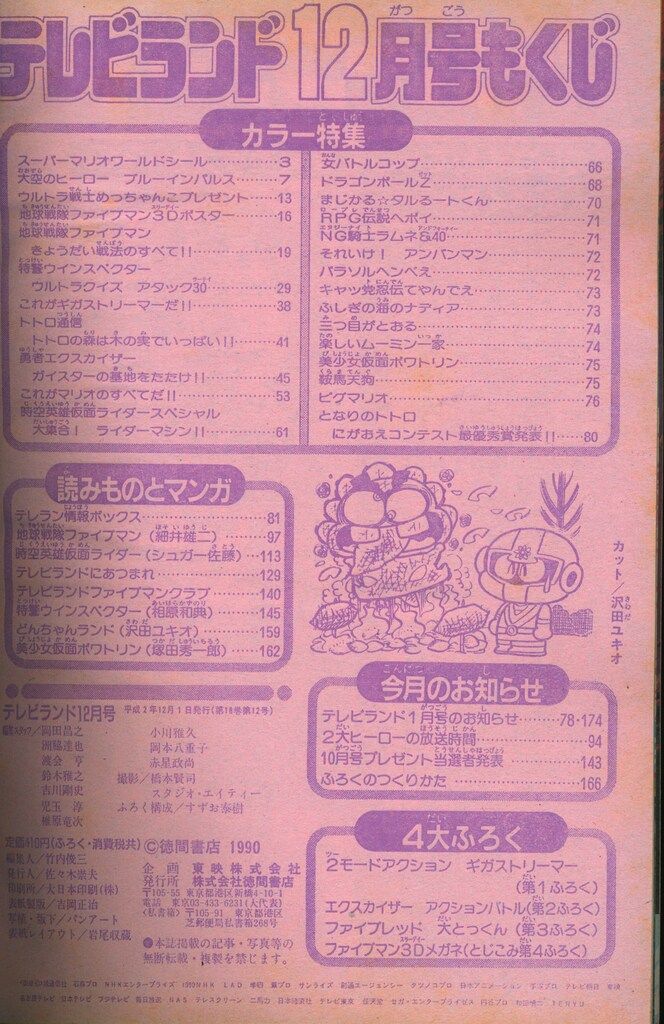 テレビランド12月号もくじ
カラー特集
スーパーマリオワールドシール…………3
大空のヒーロー ブルーインパルス……7
ウルトラ戦士めっちゃんこプレゼント……13
地球戦隊ファイブマン3Dポスター……16
地球戦隊ファイブマン
きょうだい戦法のすべて!!……19
特警ウインスペクター
ウルトラクイズ アタック30……29
これがギガストリーマーだ!!……38
トトロ通信
トトロの森は木の実でいっぱい!!……41
勇者エクスカイザー
ガイスターの基地をたたけ!!……45
これがマリオのすべてだ!!……53
時空英雄仮面ライダースペシャル
大集合! ライダーマシン!!……61
女バトルコップ……66
ドラゴンボールZ……68
まじかる☆タルるートくん……70
RPG伝説ヘポイ……71
NG騎士ラムネ&40……71
それいけ! アンパンマン……72
パラソルヘンべえ……72
キャッ党忍伝てやんでえ……73
ふしぎの海のナディア……73
三つ目がとおる……74
楽しいムーミン一家……74
美少女仮面ポワトリン……75
鞍馬天狗……75
ピグマリオ……76
となりのトトロ
にがおえコンテスト最優秀賞発表!!……80
読みものとマンガ
テレラン情報ボックス……81
地球戦隊ファイブマン(細井雄二)……97
時空英雄仮面ライダー(シュガー佐藤)…113
テレビランドにあつまれ……129
テレビランドファイブマンクラブ……140
特警ウインスペクター(相原和典)……145
どんちゃんランド(沢田ユキオ)……159
美少女仮面ポワトリン(塚田秀一郎)……162
カット/沢田ユキオ
今月のお知らせ
テレビランド1月号のお知らせ……78・174
2大ヒーローの放送時間……94
10月号プレゼント当選者発表……143
ふろくのつくりかた……166
4大ふろく
2モードアクション ギガストリーマー
(第1ふろく)
エクスカイザー アクションバトル(第2ふろく)
ファイブレッド 大とっくん(第3ふろく)
ファイブマン3Dメガネ(とじこみ第4ふろく)
テレビランド12月号 平成2年12月1日発行(第18巻第12号)
編集スタッフ/岡田昌之 小川雅久
洲脇達也 岡本八重子
渡会 亨 赤星政尚
鈴木雅之 撮影/橋本賢司
吉川剛史 スタジオ・エイティー
児玉 淳 ふろく構成/すずお泰樹
椎原竜次
定価410円(ふろく・消費税共) ©徳間書店 1990
編集人/竹内俊三
発行人/佐々木崇夫
印刷所/大日本印刷(株)
表紙製版/吉岡正治
写植・版下/パンアート
表紙レイアウト/岩尾収蔵
企画 東映株式会社
発行所 株式会社徳間書店
〒105-55 東京都港区新橋4-10-1
電話 東京03-433-6231(大代表)
(私書箱)〒105-91 東京都港区
芝郵便局私書箱268号
●本誌掲載の記事・写真等の
無断転載・複製を禁じます。